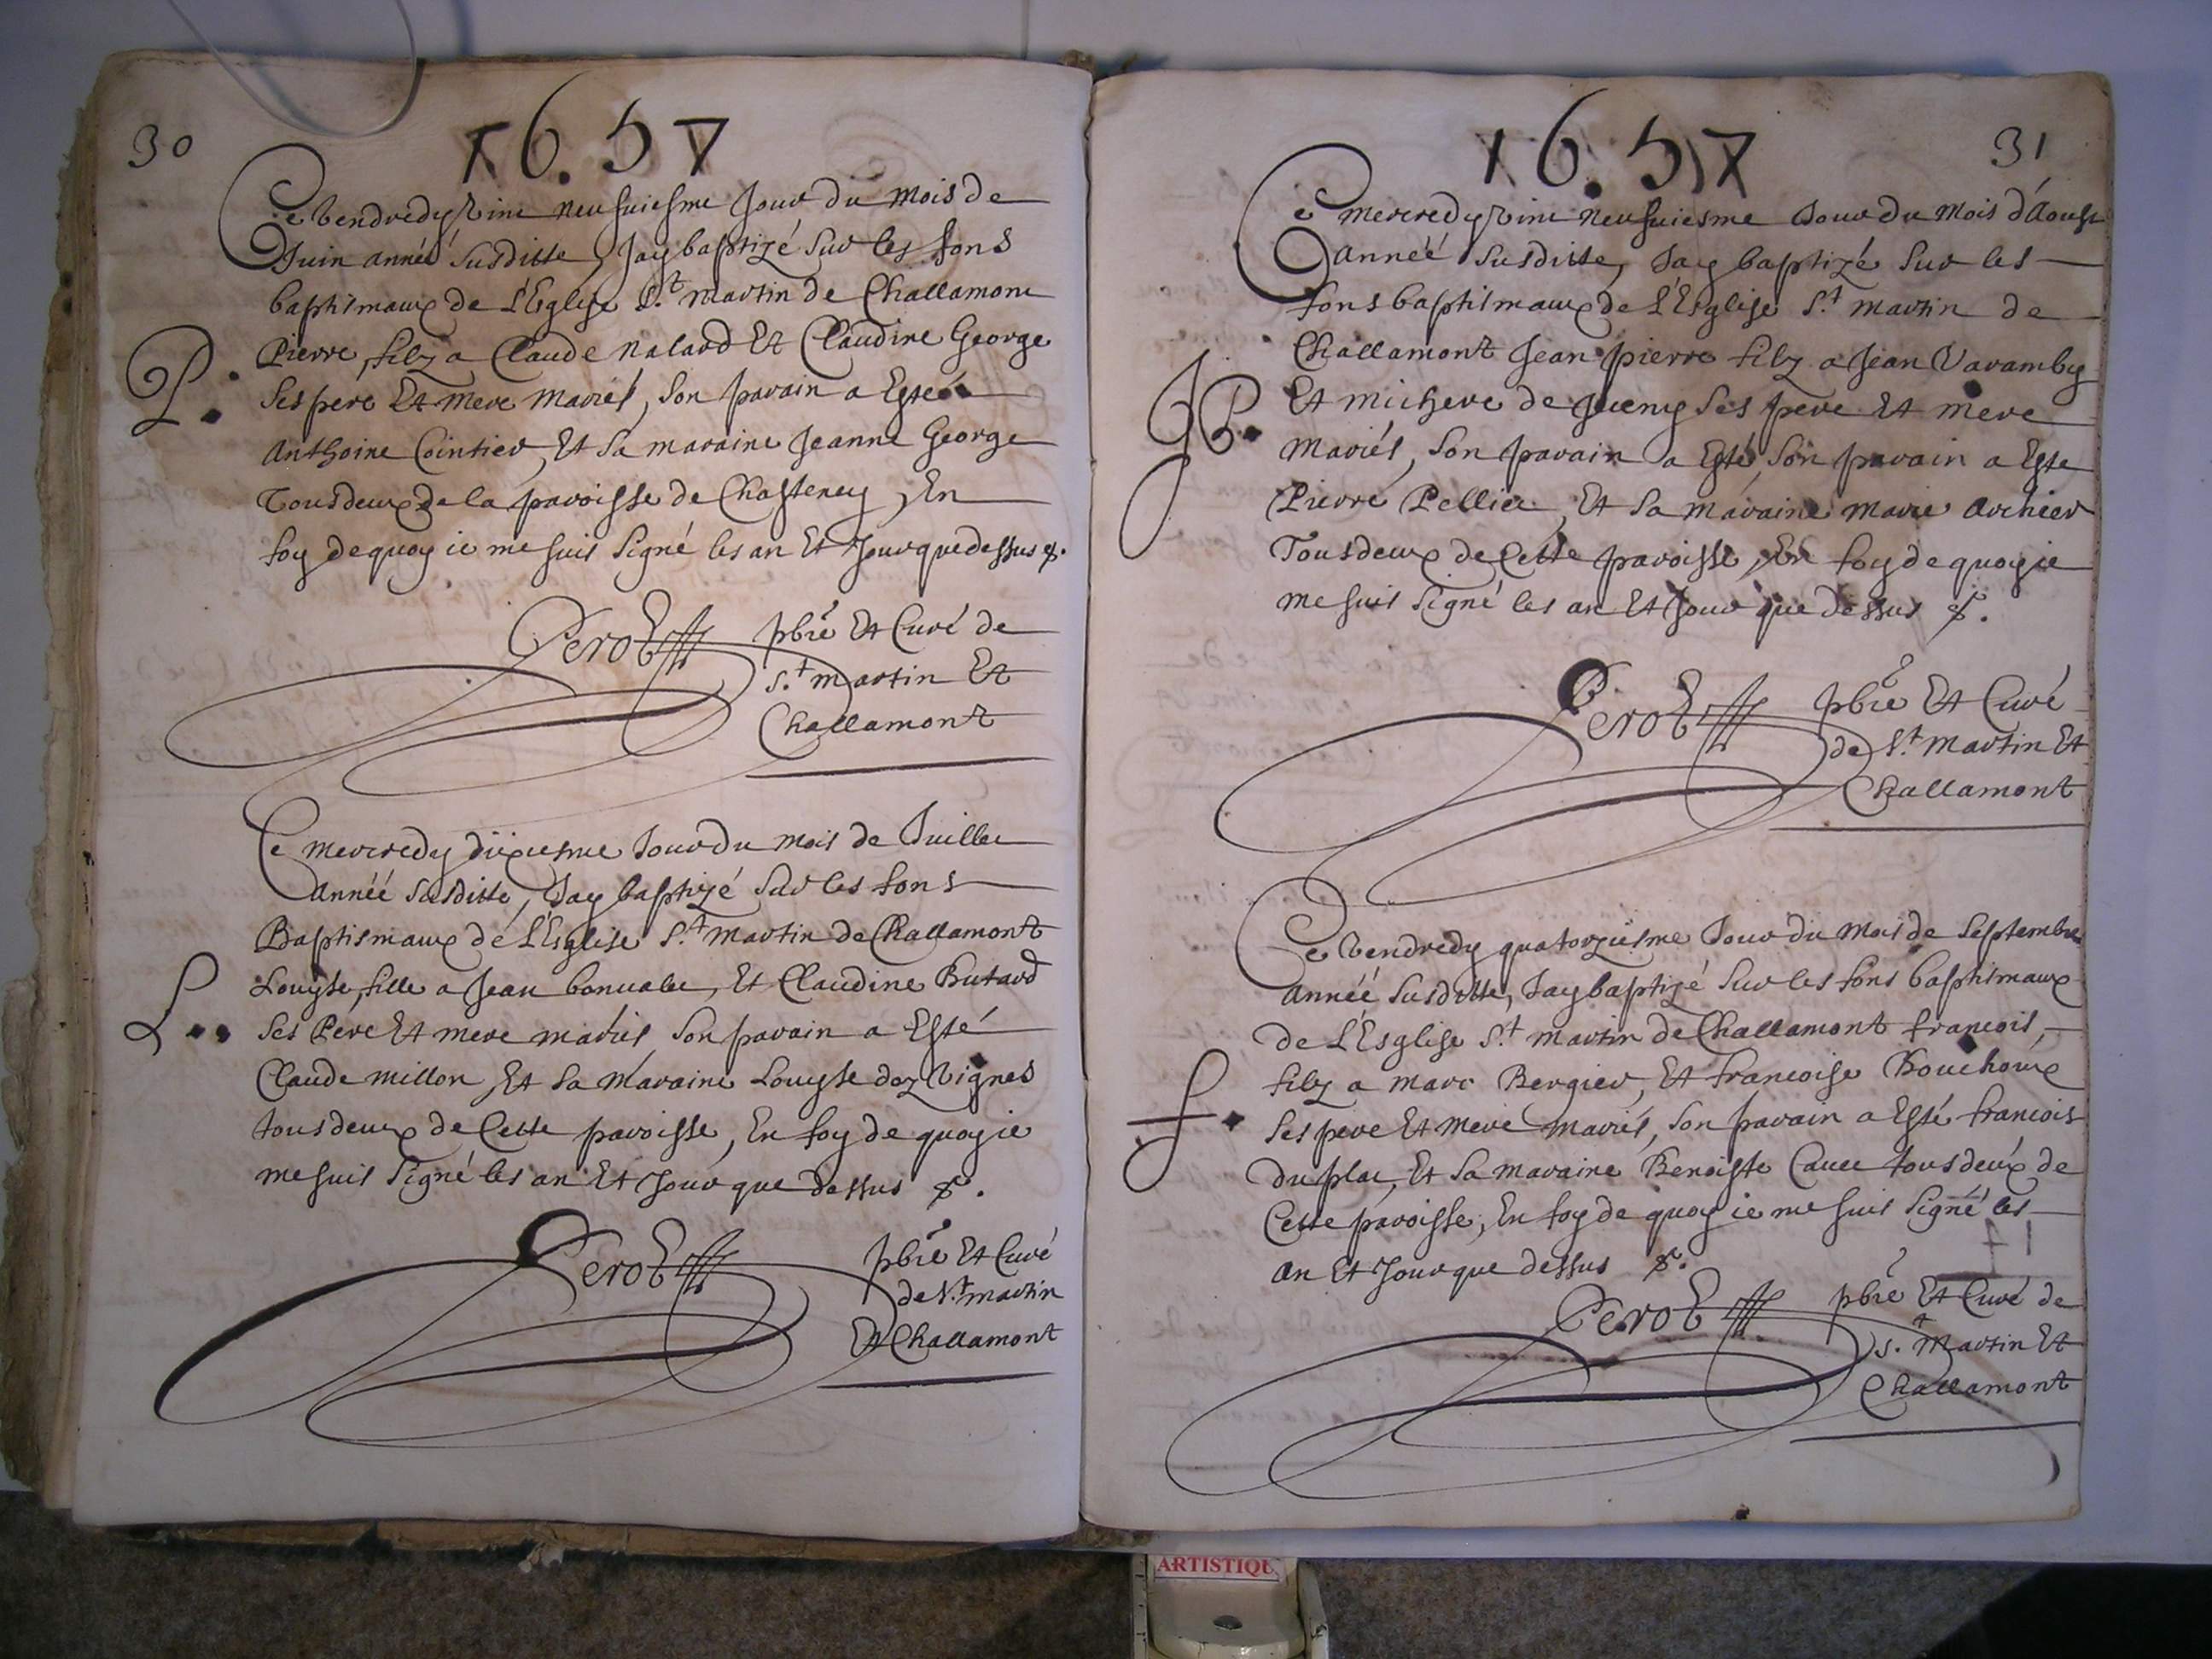 30
16.57
Ce Vendredy Vint neufuiesme Jour du mois de
Juin année susditte, Jay baptizé sur les fons
baptismaux de L'Eglise S.t martin de Challamont
P. Pierre, filz a Claude Nalard Et Claudine George
ses pere Et mere mariés, son parain a Esté
Anthoine Cointier, Et sa maraine Jeanne George
Tousdeux de la paroisse de Chasteney, En
foy de quoy ie me suis signé les an Et Jour que dessus &.
Perot pbre Et Curé de
S.t martin Et
Challamont
Ce mercredy dixiesme Jour du mois de Juillet
année susditte, Jay baptizé sur les fons
Baptismaux de L'Esglise S.t martin de Challamont
L. Louyse, fille a Jean bonualet, Et Claudine Butard
ses Pere Et mere mariés son parain a Esté
Claude millon Et sa maraine Louyse dez Vignes
tousdeux de Cette paroisse, En foy de quoy ie
me suis signé les an Et Jour que dessus &.
Perot pbre Et Curé
de S.t martin
Et Challamont
16.57
31
Ce mercredy Vint neufuiesme Jour du mois d'Aoust
année susditte, Jay baptizé sur les
fons baptismaux de L'Esglise S.t martin de
Challamont Jean pierre filz a Jean Varamby
JP. Et michere de Jueny ses pere Et mere
mariés, son parain a Esté, son parain a Este
Pierre Pellier, Et sa maraine marie Archier
Tousdeux de Cette paroisse, En foy de quoy ie
me suis signé les an Et Jour que dessus &.
Perot pbre Et Curé
de S.t martin Et
Challamont
Ce Vendredy quatorziesme Jour du mois de Septembre
année susditte, Jay baptizé sur les fons baptismaux
de L'Esglise S.t martin de Challamont francois,
f. filz a marc Bergier, Et francoise Bouchoux
ses pere Et mere mariés, son parain a Esté francois
du plat, Et sa maraine Benoiste Cauet tousdeux de
Cette paroisse, En foy de quoy ie me suis signé les
an Et Jour que dessus &.
Perot pbre Et Curé de
S.t Martin Et
Challamont
ARTISTIQU